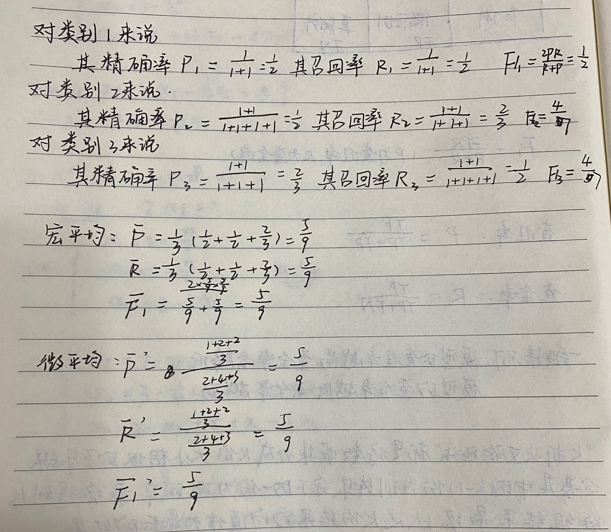 对类别1来说
其精确率 P₁ = 1/(1+1) = 1/2 其召回率 R₁ = 1/(1+1) = 1/2 F1₁ = 2PR/(R+P) = 1/2
对类别2来说.
其精确率 P₂ = (1+1)/(1+1+1+1) = 1/2 其召回率 R₂ = (1+1)/(1+1+1) = 2/3 F1₂ = 4/7
对类别3来说
其精确率 P₃ = (1+1)/(1+1+1) = 2/3 其召回率 R₃ = (1+1)/(1+1+1+1) = 1/2 F1₃ = 4/7
宏平均: P̄ = 1/3 (1/2 + 1/2 + 2/3) = 5/9
R̄ = 1/3 (1/2 + 1/2 + 2/3) = 5/9
F̄₁ = (2×5/9×5/9)/(5/9 + 5/9) = 5/9
微平均: P̄' = ((1+2+2)/3)/((2+4+3)/3) = 5/9
R̄' = ((1+2+2)/3)/((2+4+3)/3) = 5/9
F̄₁' = 5/9